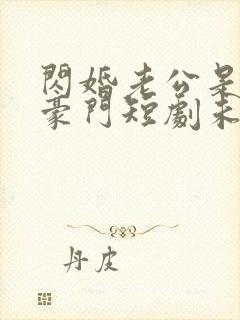 閃婚老公是
豪門短劇未
丹皮